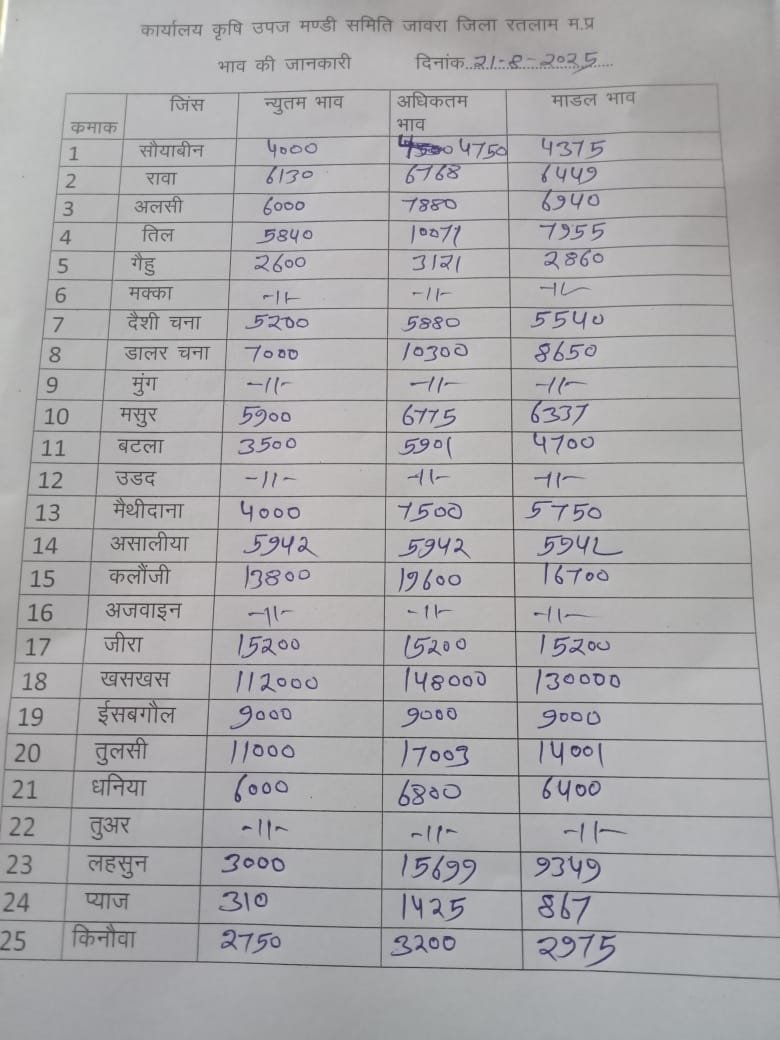 कार्यालय कृषि उपज मण्डी समिति जावरा जिला रतलाम म.प्र
भाव की जानकारी दिनांक..21-8-2025....
कमाक जिंस न्युतम भाव अधिकतम भाव माडल भाव
1 सौयाबीन 4000 4750 4375
2 रावा 6130 6768 6449
3 अलसी 6000 7880 6940
4 तिल 5840 10071 7955
5 गैहु 2600 3121 2860
6 मक्का -11- -11- -11-
7 दैशी चना 5200 5880 5540
8 डालर चना 7000 10300 8650
9 मुंग -11- -11- -11-
10 मसुर 5900 6775 6337
11 बटला 3500 5901 4700
12 उडद -11- -11- -11-
13 मैथीदाना 4000 7500 5750
14 असालीया 5942 5942 5942
15 कलौंजी 13800 19600 16700
16 अजवाइन -11- -11- -11-
17 जीरा 15200 15200 15200
18 खसखस 112000 148000 130000
19 ईसबगौल 9000 9000 9000
20 तुलसी 11000 17003 14001
21 धनिया 6000 6800 6400
22 तुअर -11- -11- -11-
23 लहसुन 3000 15699 9349
24 प्याज 310 1425 867
25 किनौवा 2750 3200 2975